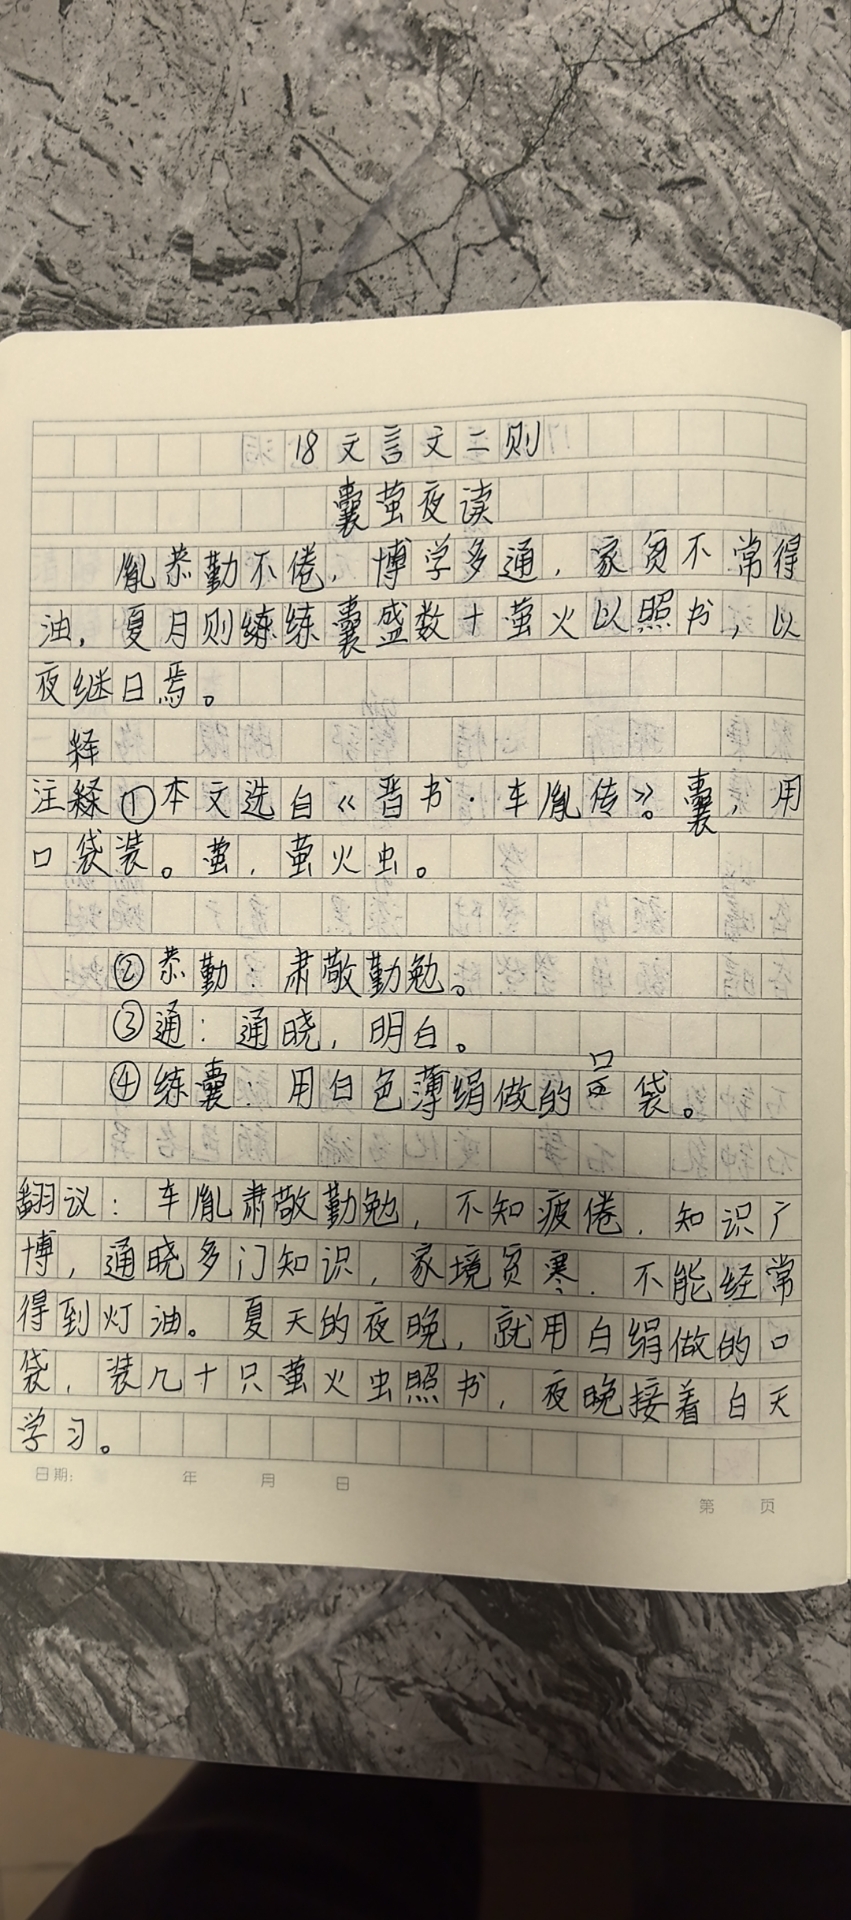 18文言文二则
囊萤夜读
胤恭勤不倦，博学多通，家贫不常得
油，夏月则练练囊盛数十萤火以照书，以
夜继日焉。
释
注释①本文选自《晋书·车胤传》。囊，用
口袋装。萤，萤火虫。
②恭勤：肃敬勤勉。
③通：通晓，明白。
口
④练囊：用白色薄绢做的袋。
翻议：车胤肃敬勤勉，不知疲倦，知识广
博，通晓多门知识，家境贫寒，不能经常
得到灯油。夏天的夜晚，就用白绢做的口
袋，装几十只萤火虫照书，夜晚接着白天
学习。
日期：　年　月　日
第　页